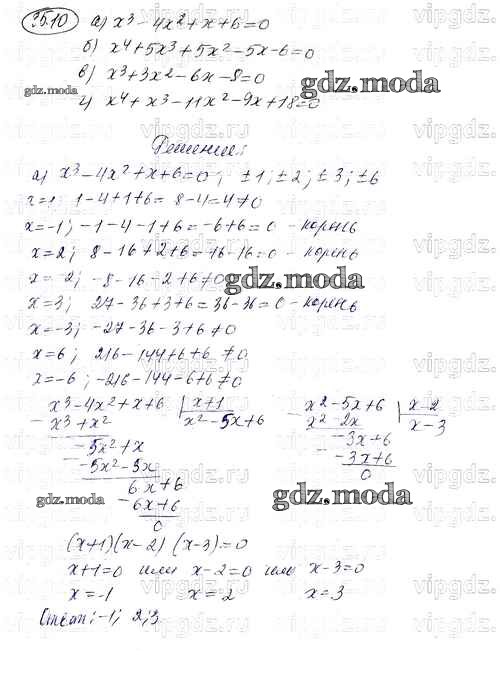 35.10 а) x³ - 4x² + x + 6 = 0
б) x⁴ + 5x³ + 5x² - 5x - 6 = 0
в) x³ + 3x² - 6x - 8 = 0
г) x⁴ + x³ - 11x² - 9x + 18 = 0
gdz.moda
gdz.moda
Решение:
а) x³ - 4x² + x + 6 = 0 ; ±1; ±2; ±3; ±6
x=1; 1 - 4 + 1 + 6 = 8 - 4 = 4 ≠ 0
x=-1; -1 - 4 - 1 + 6 = -6 + 6 = 0 - корень
x=2; 8 - 16 + 2 + 6 = 16 - 16 = 0 - корень
x=-2; -8 - 16 - 2 + 6 ≠ 0
gdz.moda
x=3; 27 - 36 + 3 + 6 = 36 - 36 = 0 - корень
x=-3; -27 - 36 - 3 + 6 ≠ 0
x=6; 216 - 144 + 6 + 6 ≠ 0
x=-6; -216 - 144 - 6 + 6 ≠ 0
x³ - 4x² + x + 6 | x+1
x³ + x² x² - 5x + 6
-5x² + x
-5x² - 5x
6x + 6
6x + 6
0
x² - 5x + 6 | x - 2
x² - 2x x - 3
-3x + 6
-3x + 6
0
gdz.moda
gdz.moda
(x+1)(x-2)(x-3)=0
x+1=0 или x-2=0 или x-3=0
x=-1 x=2 x=3
Ответ: -1; 2; 3
vipgdz.ru